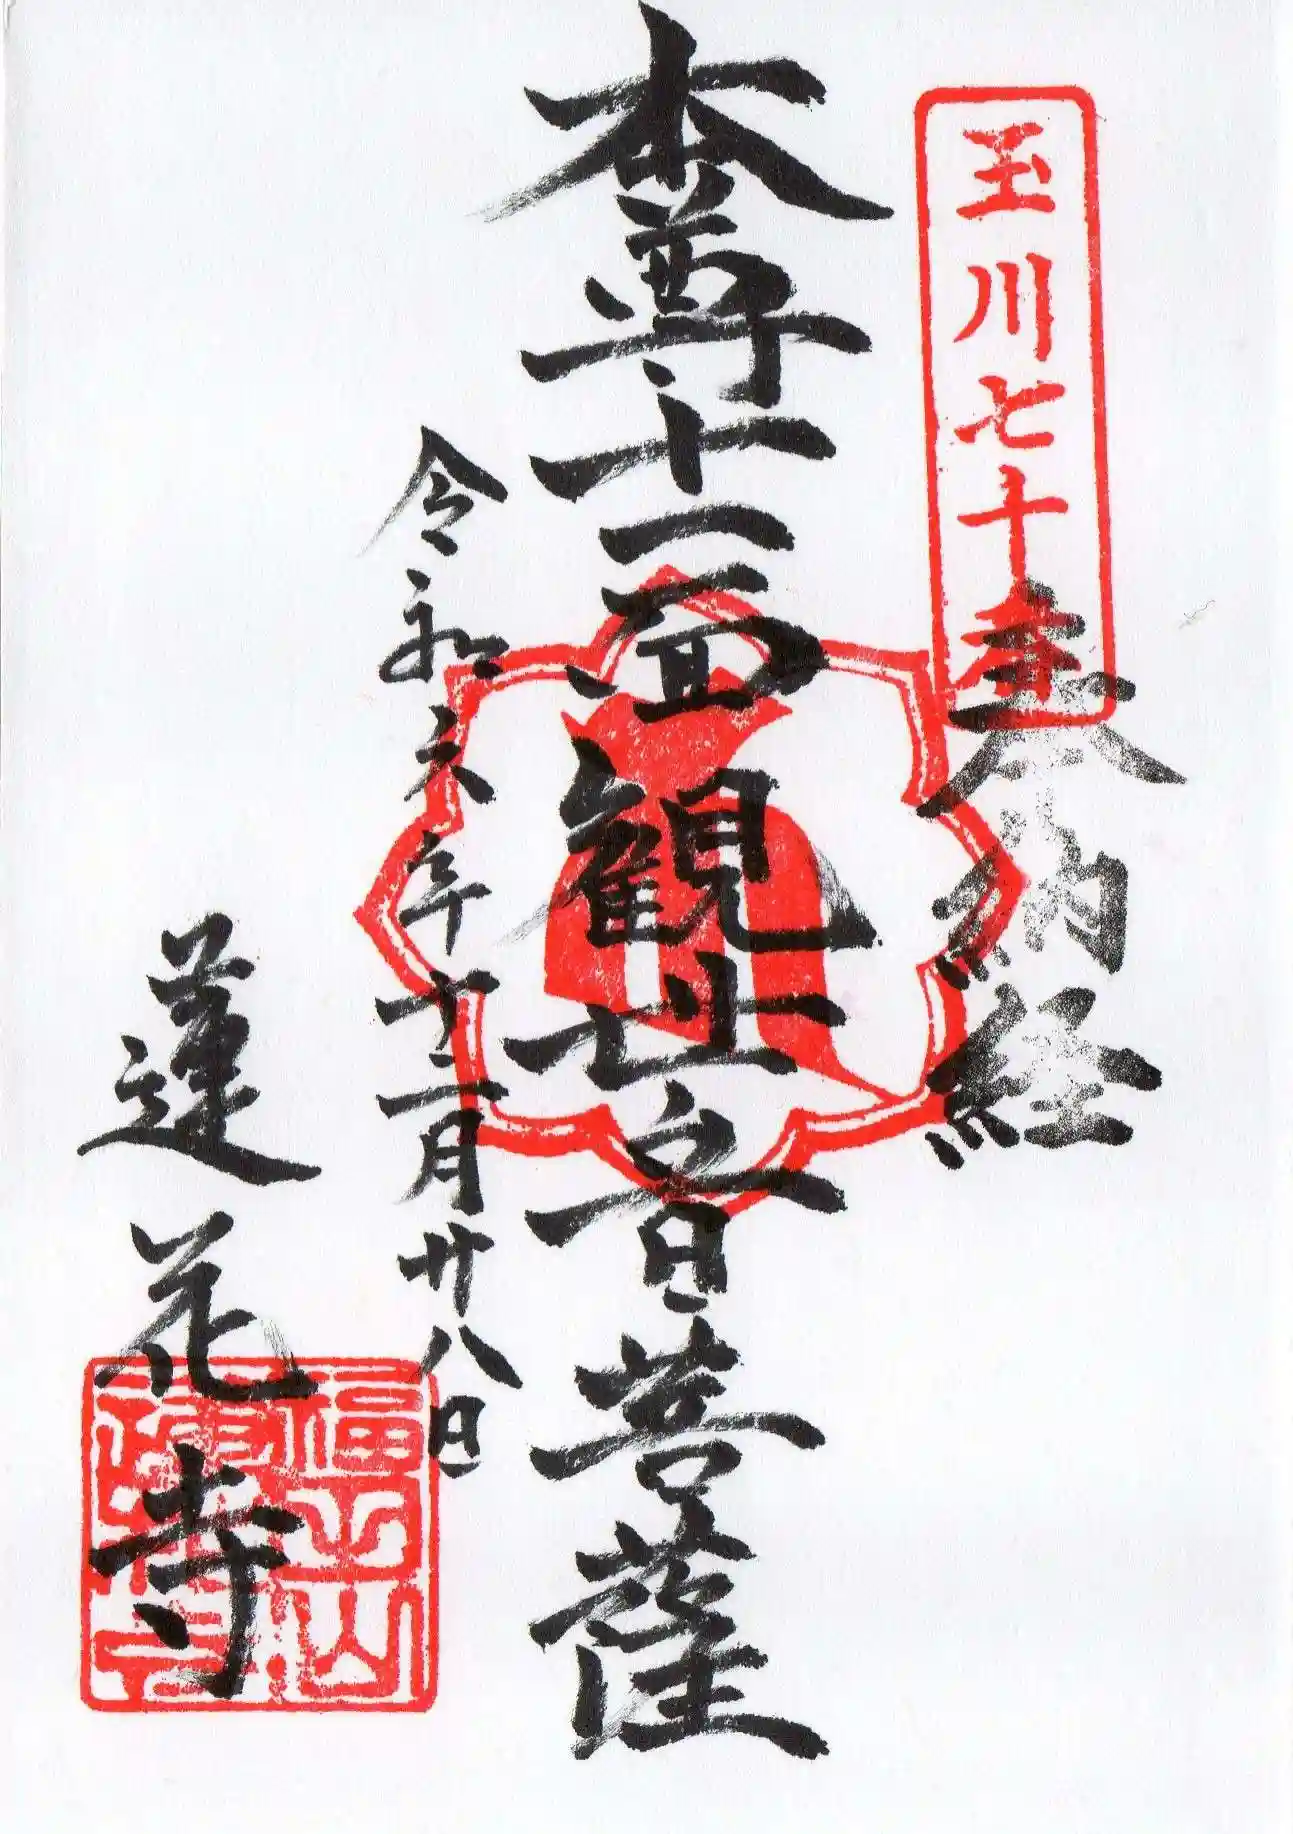 玉川七十
奉納経
本尊十一面観世音菩薩
令和六年十二月廿八日
蓮花寺